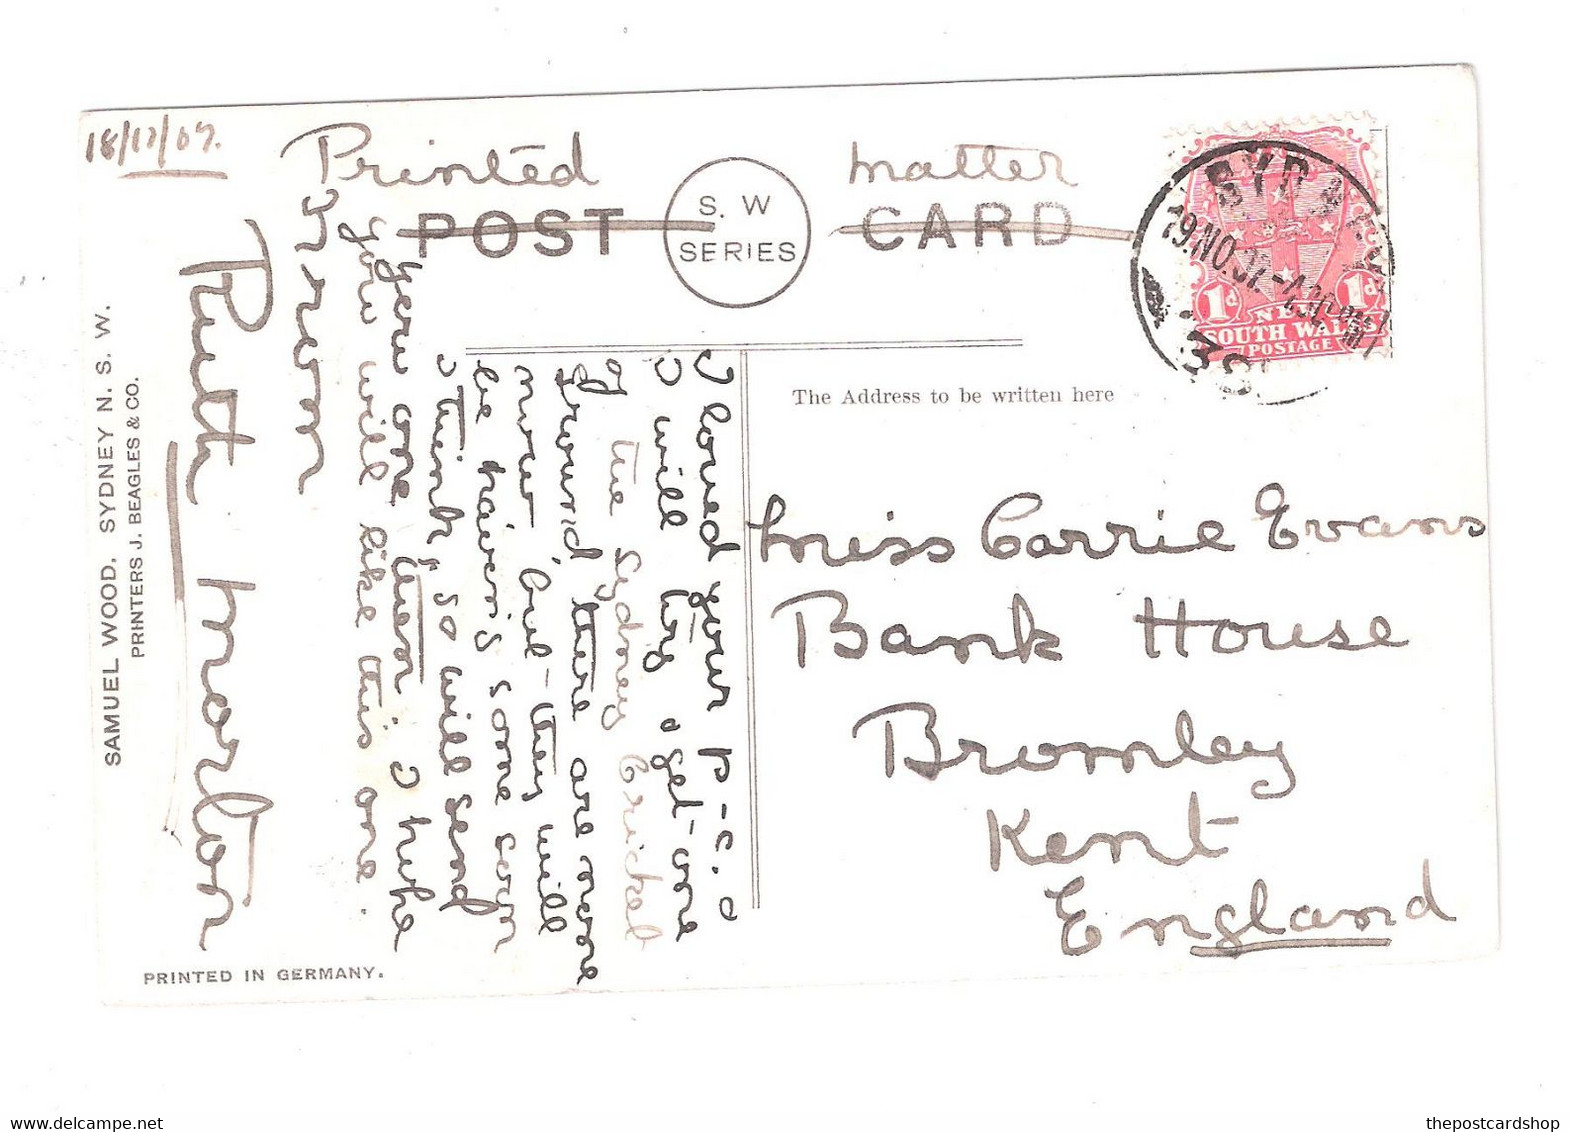 18/11/07.
Printed matter
POST CARD
S. W
SERIES
SYDNEY
19.NO.07.-4 30PM
1d 1d
NEW
SOUTH WALES
POSTAGE
The Address to be written here
Miss Carrie Evans
Bank House
Bromley
Kent
England
I loved your p-c. I
I will try & get-one
of the Sydney Cricket
Ground, there are none
now, but-they will
be having some soon
I think, so will send
you one then. I hope
you will like this one.
From
Ruth Marlton
SAMUEL WOOD. SYDNEY N. S. W.
PRINTERS J. BEAGLES & CO.
PRINTED IN GERMANY.
thepostcardshop